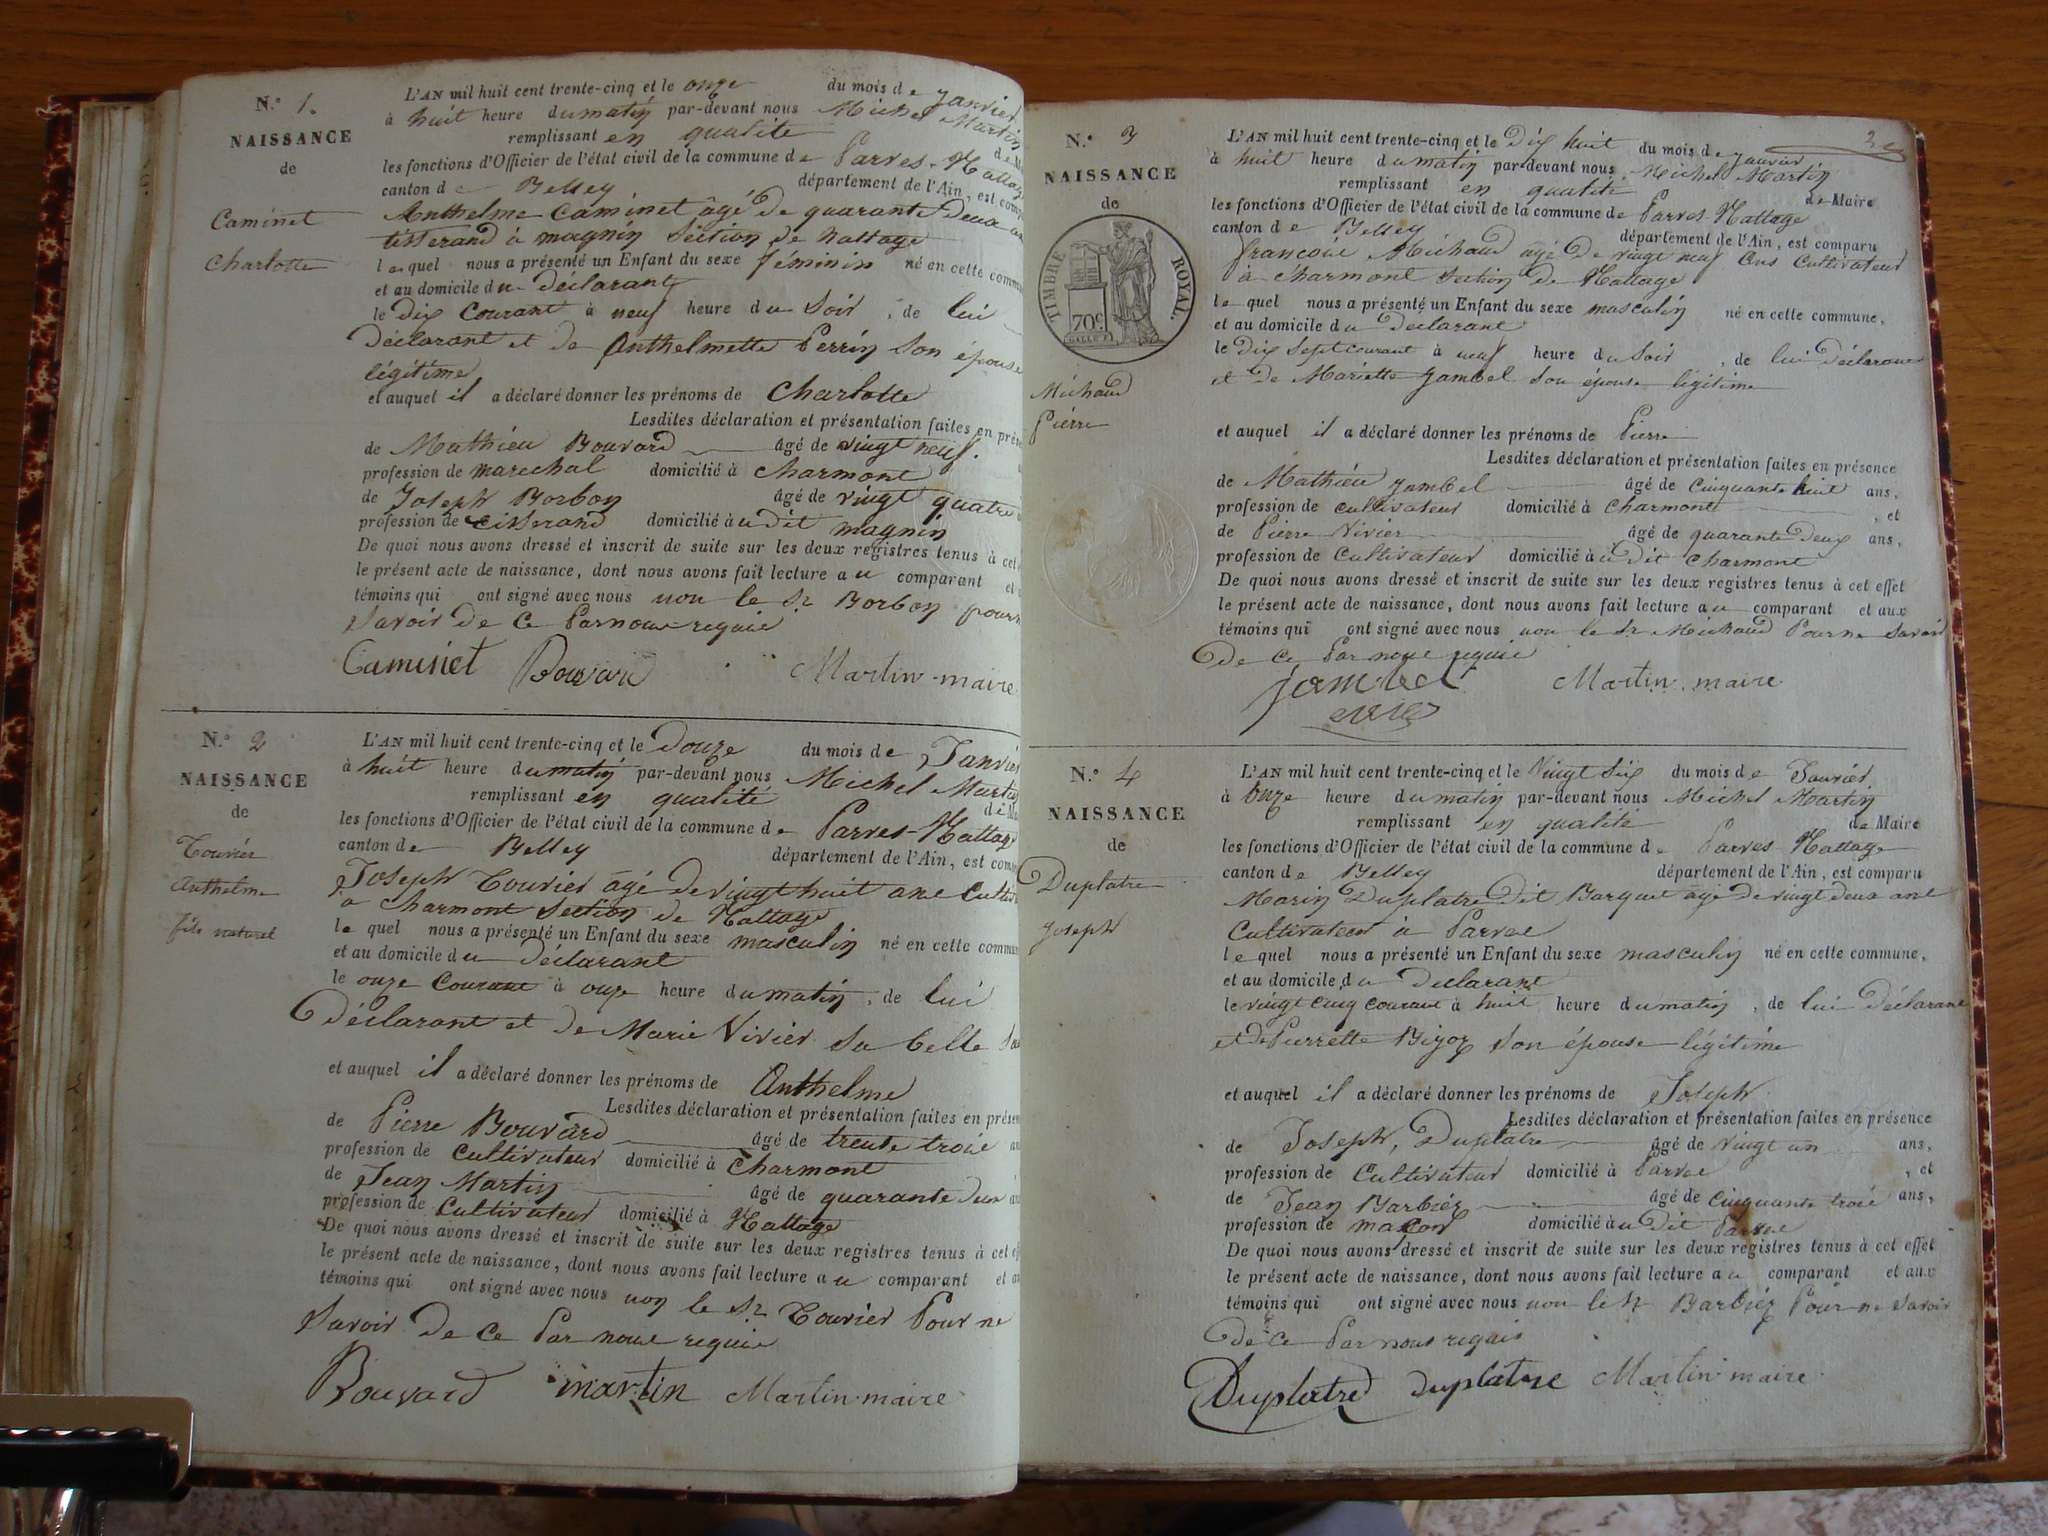 N.º 1.
NAISSANCE
de
Caminet
Charlotte
L'AN mil huit cent trente-cinq et le onze du mois de janvier
à huit heure du matin par-devant nous Michel Martin
remplissant en qualité de
les fonctions d'Officier de l'état civil de la commune de Parves-Nattage
canton de Belley département de l'Ain, est
Anthelme Caminet âgé de quarante deux
tisserand à magnin Section de nattage
lequel nous a présenté un Enfant du sexe féminin né en cette
et au domicile du déclarant
le dix courant à neuf heure du soir, de lui
déclarant et de Anthelmette Perrin son épouse
légitime
et auquel il a déclaré donner les prénoms de Charlotte
Lesdites déclaration et présentation faites en
de Mathieu Bouvard âgé de vingt neuf.
profession de marechal domicilié à Charmont
de Joseph Borbon âgé de vingt quatre
profession de tisserand domicilié audit magnin
De quoi nous avons dressé et inscrit de suite sur les deux registres tenus à cet
le présent acte de naissance, dont nous avons fait lecture au comparant et
témoins qui ont signé avec nous non le Sr Borbon pour
Savoir de ce Par nous requis
Caminet Bouvard Martin-maire
N.º 2
NAISSANCE
de
Tourier
Anthelme
fils naturel
L'AN mil huit cent trente-cinq et le Douze du mois de Janvier
à huit heure du matin par-devant nous Michel Martin
remplissant en qualité de
les fonctions d'Officier de l'état civil de la commune de Parves-Nattage
canton de Belley département de l'Ain, est
Joseph Tourier âgé de vingt huit ans
a Charmont Section de Nattage
lequel nous a présenté un Enfant du sexe masculin né en cette
et au domicile du déclarant
le onze courant à onze heure du matin, de lui
déclarant et de Marie Vivier sa belle
et auquel il a déclaré donner les prénoms de Anthelme
Lesdites déclaration et présentation faites en
de Pierre Bouvard âgé de trente trois
profession de Cultivateur domicilié à Charmont
de Jean Martin âgé de quarante deux
profession de Cultivateur domicilié à Nattage
De quoi nous avons dressé et inscrit de suite sur les deux registres tenus à cet
le présent acte de naissance, dont nous avons fait lecture au comparant et
témoins qui ont signé avec nous non le Sr Tourier Pour ne
Savoir de ce Par nous requis
Bouvard martin Martin-maire
N.º 3
NAISSANCE
de
TIMBRE ROYAL.
70c
Michaud
Pierre
L'AN mil huit cent trente-cinq et le Dix huit du mois de janvier
à huit heure du matin par-devant nous Michel Martin
remplissant en qualité de Maire
les fonctions d'Officier de l'état civil de la commune de Parves Nattage
canton de Belley département de l'Ain, est comparu
françois Michaud âgé de vingt neuf ans Cultivateur
à Charmont Section de Nattage
lequel nous a présenté un Enfant du sexe masculin né en cette commune,
et au domicile du déclarant
le dix sept courant à neuf heure du soir, de lui déclarant
et de Mariette Jambel son épouse légitime
et auquel il a déclaré donner les prénoms de Pierre
Lesdites déclaration et présentation faites en présence
de Mathieu Jambel âgé de Cinquante huit ans,
profession de cultivateur domicilié à Charmont, et
de Pierre Vivier âgé de quarante deux ans,
profession de Cultivateur domicilié audit Charmont
De quoi nous avons dressé et inscrit de suite sur les deux registres tenus à cet effet
le présent acte de naissance, dont nous avons fait lecture au comparant et aux
témoins qui ont signé avec nous non le Sr Michaud Pour ne Savoir
De ce Par nous requis
Martin. maire
N.º 4
NAISSANCE
de
Duplatre
Joseph
L'AN mil huit cent trente-cinq et le Vingt six du mois de Janvier
à Onze heure du matin par-devant nous Michel Martin
remplissant en qualité de Maire
les fonctions d'Officier de l'état civil de la commune de Parves Nattage
canton de Belley département de l'Ain, est comparu
Marin Duplatre Dit Barquet âgé de vingt deux ans
Cultivateur à Parves
lequel nous a présenté un Enfant du sexe masculin né en cette commune,
et au domicile du Déclarant
le vingt cinq courant à huit heure du matin, de lui Déclarant
et de Pierrette son épouse légitime
et auquel il a déclaré donner les prénoms de Joseph
Lesdites déclaration et présentation faites en présence
de Joseph, Duplatre âgé de vingt un ans,
profession de Cultivateur domicilié à Parves, et
de Jean Barbier âgé de cinquante trois ans,
profession de macon domicilié audit Parves
De quoi nous avons dressé et inscrit de suite sur les deux registres tenus à cet effet
le présent acte de naissance, dont nous avons fait lecture au comparant et aux
témoins qui ont signé avec nous non le Sr Barbier Pour ne Savoir
de ce Par nous requis
Duplatre duplatre Martin maire